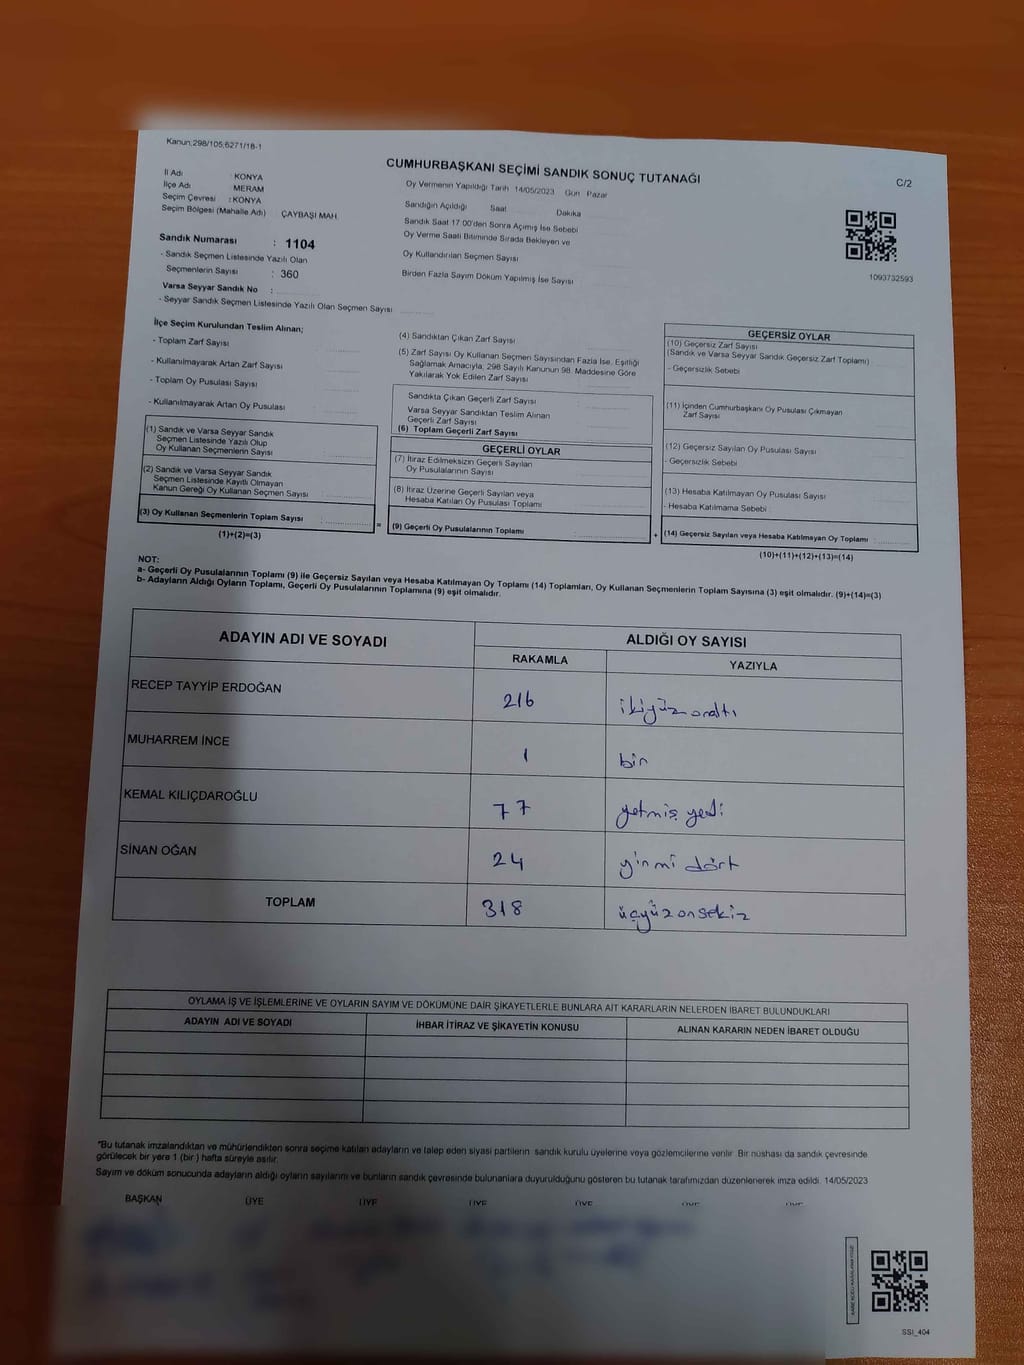 Kanun;298/105;6271/18-1
CUMHURBAŞKANI SEÇİMİ SANDIK SONUÇ TUTANAĞI
C/2
İl Adı : KONYA
İlçe Adı : MERAM
Seçim Çevresi : KONYA
Seçim Bölgesi (Mahalle Adı) : ÇAYBAŞI MAH.
Sandık Numarası : 1104
- Sandık Seçmen Listesinde Yazılı Olan
Seçmenlerin Sayısı : 360
Varsa Seyyar Sandık No :
- Seyyar Sandık Seçmen Listesinde Yazılı Olan Seçmen Sayısı
Oy Vermenin Yapıldığı Tarih 14/05/2023 Gün Pazar
Sandığın Açıldığı Saat Dakika
Sandık Saat 17 00'den Sonra Açımış İse Sebebi
Oy Verme Saati Bitiminde Sırada Bekleyen ve
Oy Kullandırılan Seçmen Sayısı
Birden Fazla Sayım Döküm Yapılmış İse Sayısı
1093732593
İlçe Seçim Kurulundan Teslim Alınan;
- Toplam Zarf Sayısı
- Kullanılmayarak Artan Zarf Sayısı
- Toplam Oy Pusulası Sayısı
- Kullanılmayarak Artan Oy Pusulası
(1) Sandık ve Varsa Seyyar Sandık
Seçmen Listesinde Yazılı Olup
Oy Kullanan Seçmenlerin Sayısı
(2) Sandık ve Varsa Seyyar Sandık
Seçmen Listesinde Kayıtlı Olmayan
Kanun Gereği Oy Kullanan Seçmen Sayısı
(3) Oy Kullanan Seçmenlerin Toplam Sayısı :
(1)+(2)=(3)
(4) Sandıktan Çıkan Zarf Sayısı
(5) Zarf Sayısı Oy Kullanan Seçmen Sayısından Fazla İse, Eşitliği
Sağlamak Amacıyla, 298 Sayılı Kanunun 98. Maddesine Göre
Yakılarak Yok Edilen Zarf Sayısı
Sandıkta Çıkan Geçerli Zarf Sayısı
Varsa Seyyar Sandıktan Teslim Alınan
Geçerli Zarf Sayısı
(6) Toplam Geçerli Zarf Sayısı
GEÇERLİ OYLAR
(7) İtiraz Edilmeksizin Geçerli Sayılan
Oy Pusulalarının Sayısı
(8) İtiraz Üzerine Geçerli Sayılan veya
Hesaba Katılan Oy Pusulası Toplamı
= (9) Geçerli Oy Pusulalarının Toplamı :
GEÇERSİZ OYLAR
(10) Geçersiz Zarf Sayısı
(Sandık ve Varsa Seyyar Sandık Geçersiz Zarf Toplamı)
- Geçersizlik Sebebi
(11) İçinden Cumhurbaşkanı Oy Pusulası Çıkmayan
Zarf Sayısı
(12) Geçersiz Sayılan Oy Pusulası Sayısı
- Geçersizlik Sebebi
(13) Hesaba Katılmayan Oy Pusulası Sayısı
- Hesaba Katılmama Sebebi
+ (14) Geçersiz Sayılan veya Hesaba Katılmayan Oy Toplamı :
(10)+(11)+(12)+(13)=(14)
NOT:
a- Geçerli Oy Pusulalarının Toplamı (9) ile Geçersiz Sayılan veya Hesaba Katılmayan Oy Toplamı (14) Toplamları, Oy Kullanan Seçmenlerin Toplam Sayısına (3) eşit olmalıdır. (9)+(14)=(3)
b- Adayların Aldığı Oyların Toplamı, Geçerli Oy Pusulalarının Toplamına (9) eşit olmalıdır.
ADAYIN ADI VE SOYADI ALDIĞI OY SAYISI
RAKAMLA YAZIYLA
RECEP TAYYİP ERDOĞAN 216 ikiyüzonaltı
MUHARREM İNCE 1 bir
KEMAL KILIÇDAROĞLU 77 yetmiş yedi
SİNAN OĞAN 24 yirmi dört
TOPLAM 318 üçyüzonsekiz
OYLAMA İŞ VE İŞLEMLERİNE VE OYLARIN SAYIM VE DÖKÜMÜNE DAİR ŞİKAYETLERLE BUNLARA AİT KARARLARIN NELERDEN İBARET BULUNDUKLARI
ADAYIN ADI VE SOYADI İHBAR İTİRAZ VE ŞİKAYETİN KONUSU ALINAN KARARIN NEDEN İBARET OLDUĞU
"Bu tutanak imzalandıktan ve mühürlendikten sonra seçime katılan adayların ve talep eden siyasi partilerin sandık kurulu üyelerine veya gözlemcilerine verilir. Bir nüshası da sandık çevresinde
görülecek bir yere 1 (bir) hafta süreyle asılır.
Sayım ve döküm sonucunda adayların aldığı oyların sayılarını ve bunların sandık çevresinde bulunanlara duyurulduğunu gösteren bu tutanak tarafımızdan düzenlenerek imza edildi. 14/05/2023
BAŞKAN ÜYE ÜYE ÜYE ÜYE ÜYE ÜYE
SSİ_404